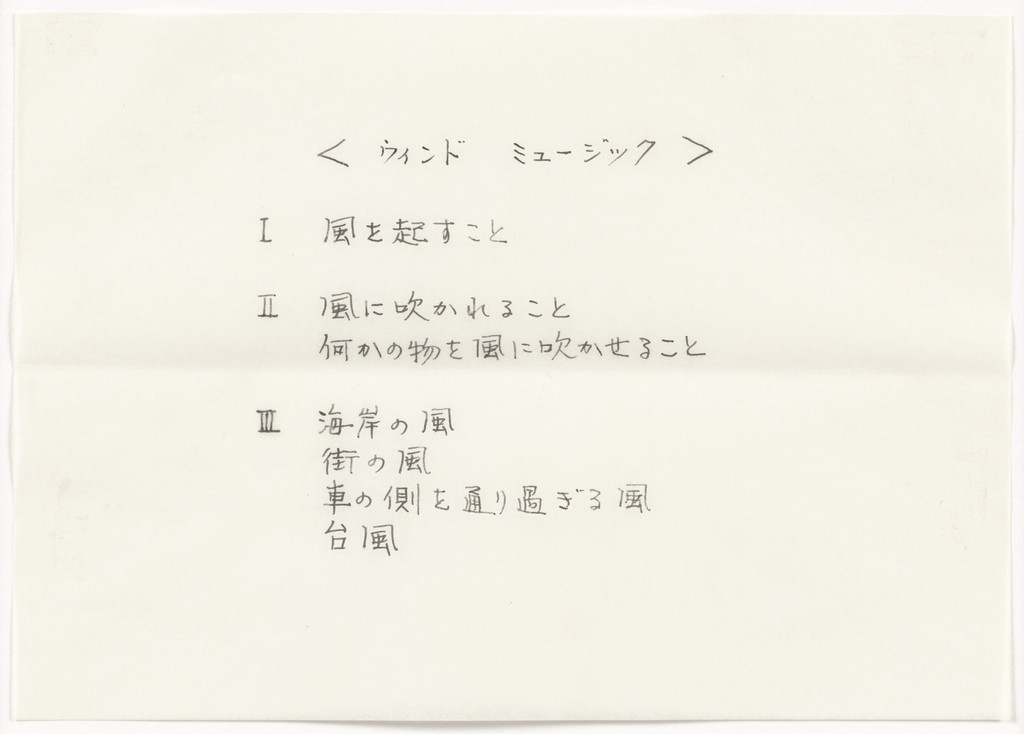 < ウィンド ミュージック >
I 風を起すこと
II 風に吹かれること
何かの物を風に吹かせること
III 海岸の風
街の風
車の側を通り過ぎる風
台風